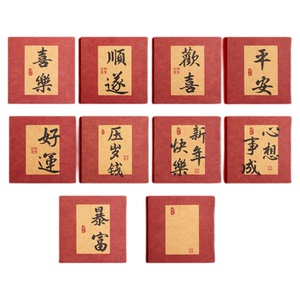 喜樂
順遂
歡喜
平安
好運
压岁钱
新年快樂
心想事成
暴富